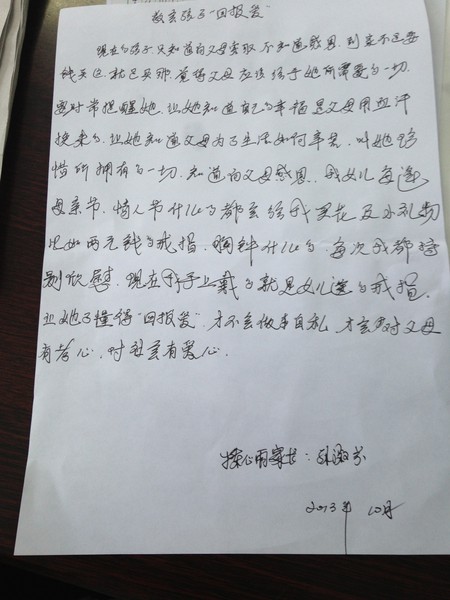 教会孩子“回报爱”
现在的孩子只知道向父母索取不知道感恩,到家不是要
钱买这,就是买那,觉得父母应该给予她所需要的一切.
要时常提醒她,让她知道自己的幸福是父母用血汗
换来的,让她知道父母为了生活如何辛苦,叫她珍
惜所拥有的一切,知道向父母感恩.我女儿每逢
母亲节,情人节什么的都会给我买花及小礼物
比如两元钱的戒指,胸针什么的,每次我都特
别欣慰.现在我手上戴的就是女儿送的戒指.
让她了懂得“回报爱”,才不会做事自私,才会对父母
有孝心,对社会有爱心.
家长:
2013年 10月